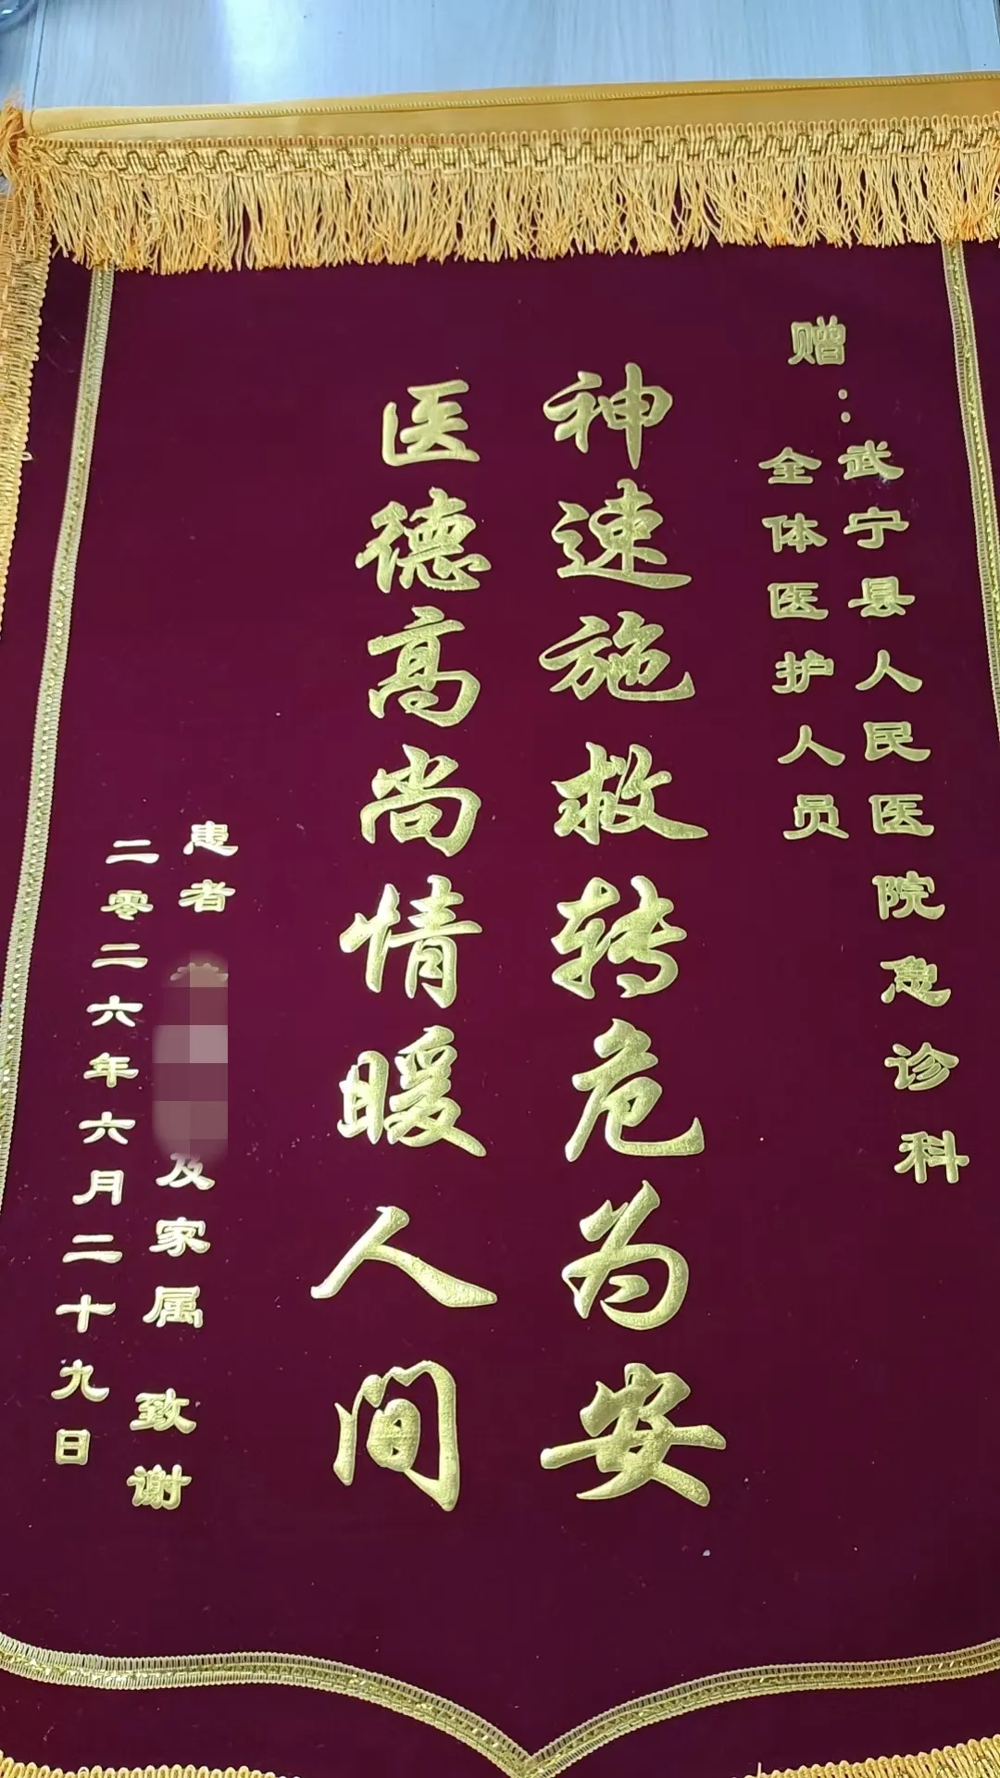 赠：武宁县人民医院急诊科
全体医护人员
神速施救转危为安
医德高尚情暖人间
患者 及家属 致谢
二零二六年六月二十九日